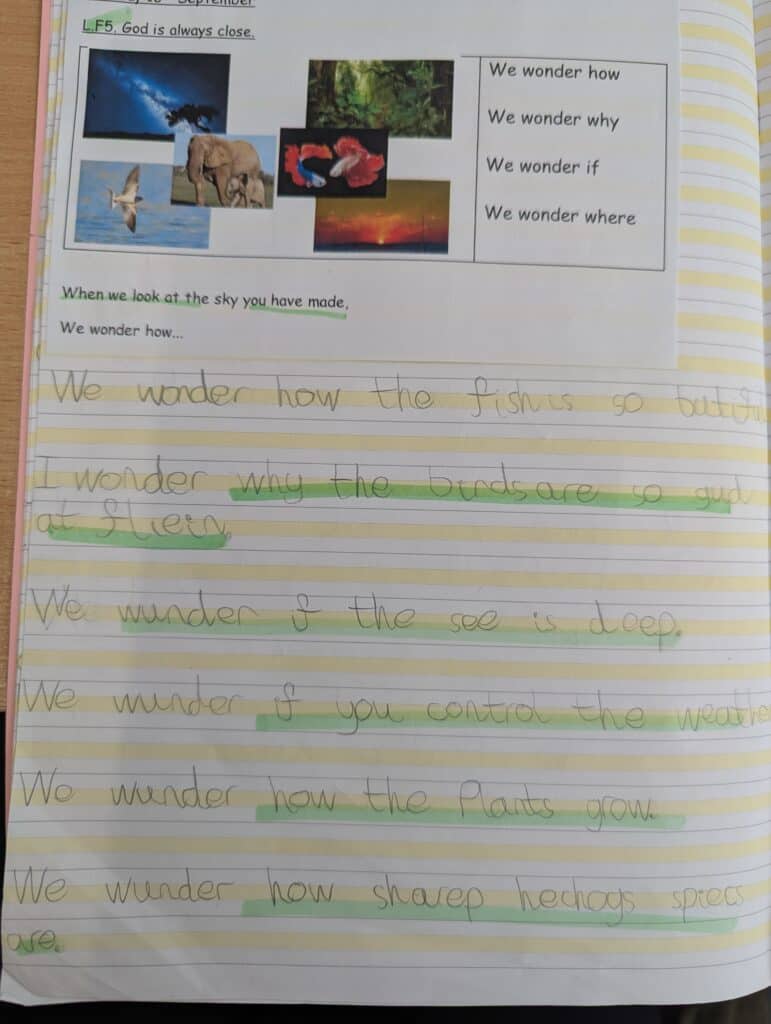 September
L.F5. God is always close.
We wonder how
We wonder why
We wonder if
We wonder where
When we look at the sky you have made,
We wonder how...
We wonder how the fish is so
I wonder why the birds are so gud
at fliein.
We wunder if the see is deep.
We wunder if you control the weathe
We wunder how the Plants grow.
We wunder how sharep hechogs spiecs
are.